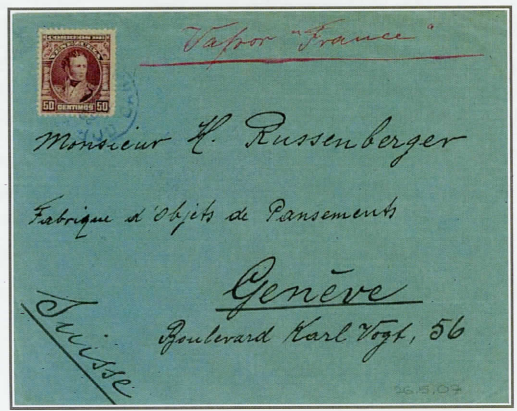 Vapor "France"
50 CENTIMOS 50
Monsieur H. Russenberger
Fabrique d'Objets de Pansements
Genève
Boulevard Karl Vogt, 56
Suisse
26.5.07